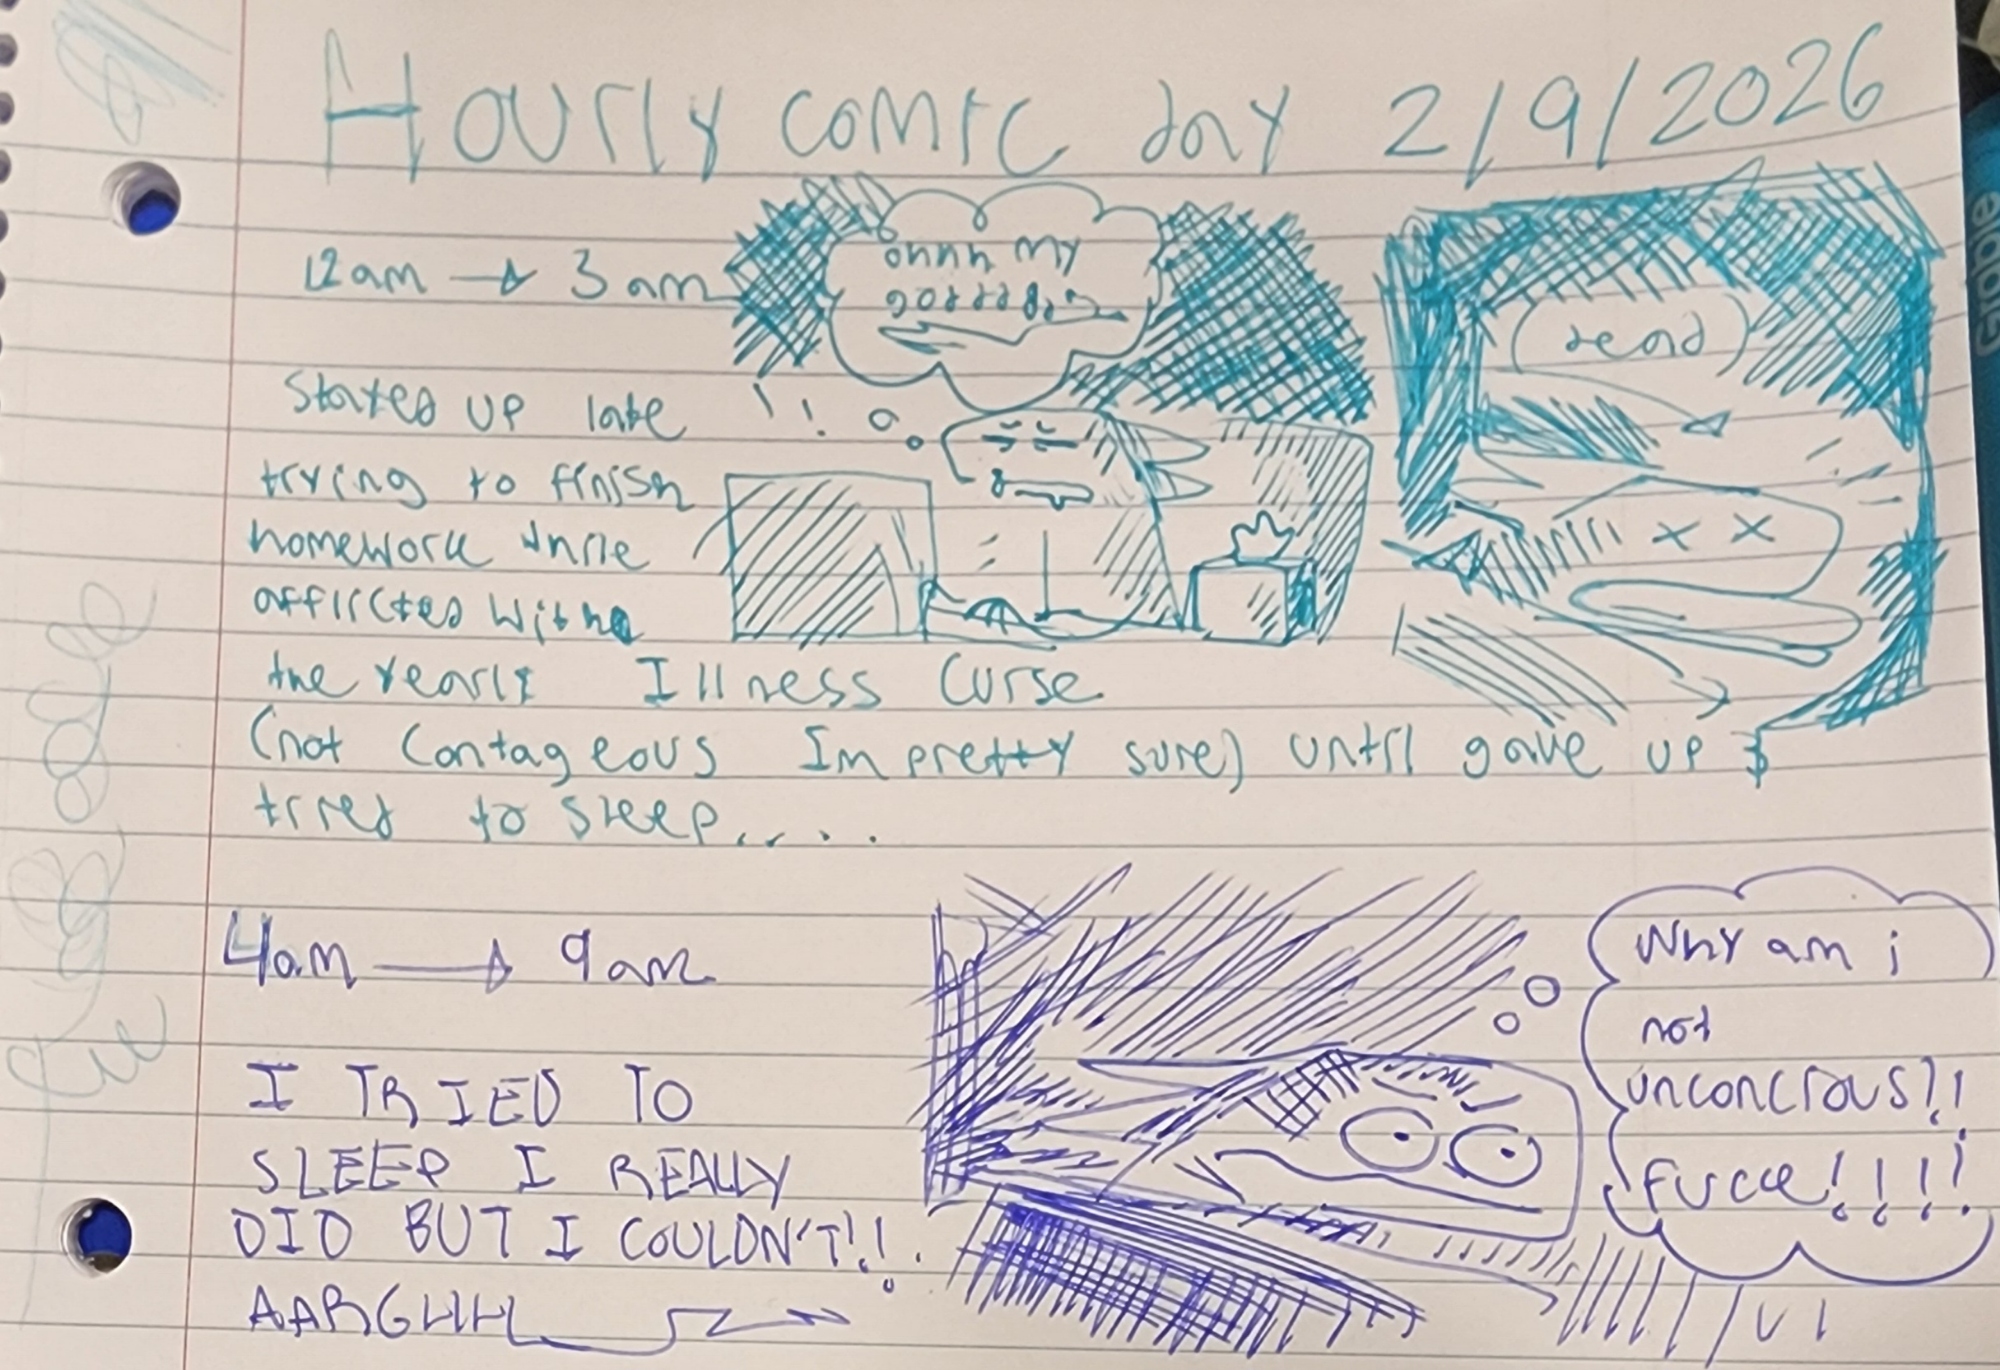 Hourly comic day 2/9/2026
12am → 3am
ohhh my
godddd
(dead)
Stayed up late
trying to finish
homework while
afflicted with
the yearly Illness Curse
(not Contageous Im pretty sure) until gave up &
tried to sleep....
4am → 9am
I TRIED TO
SLEEP I REALLY
DID BUT I COULDN'T!!
AARGHHH
Why am i
not
unconcious?!
fucck!!!!